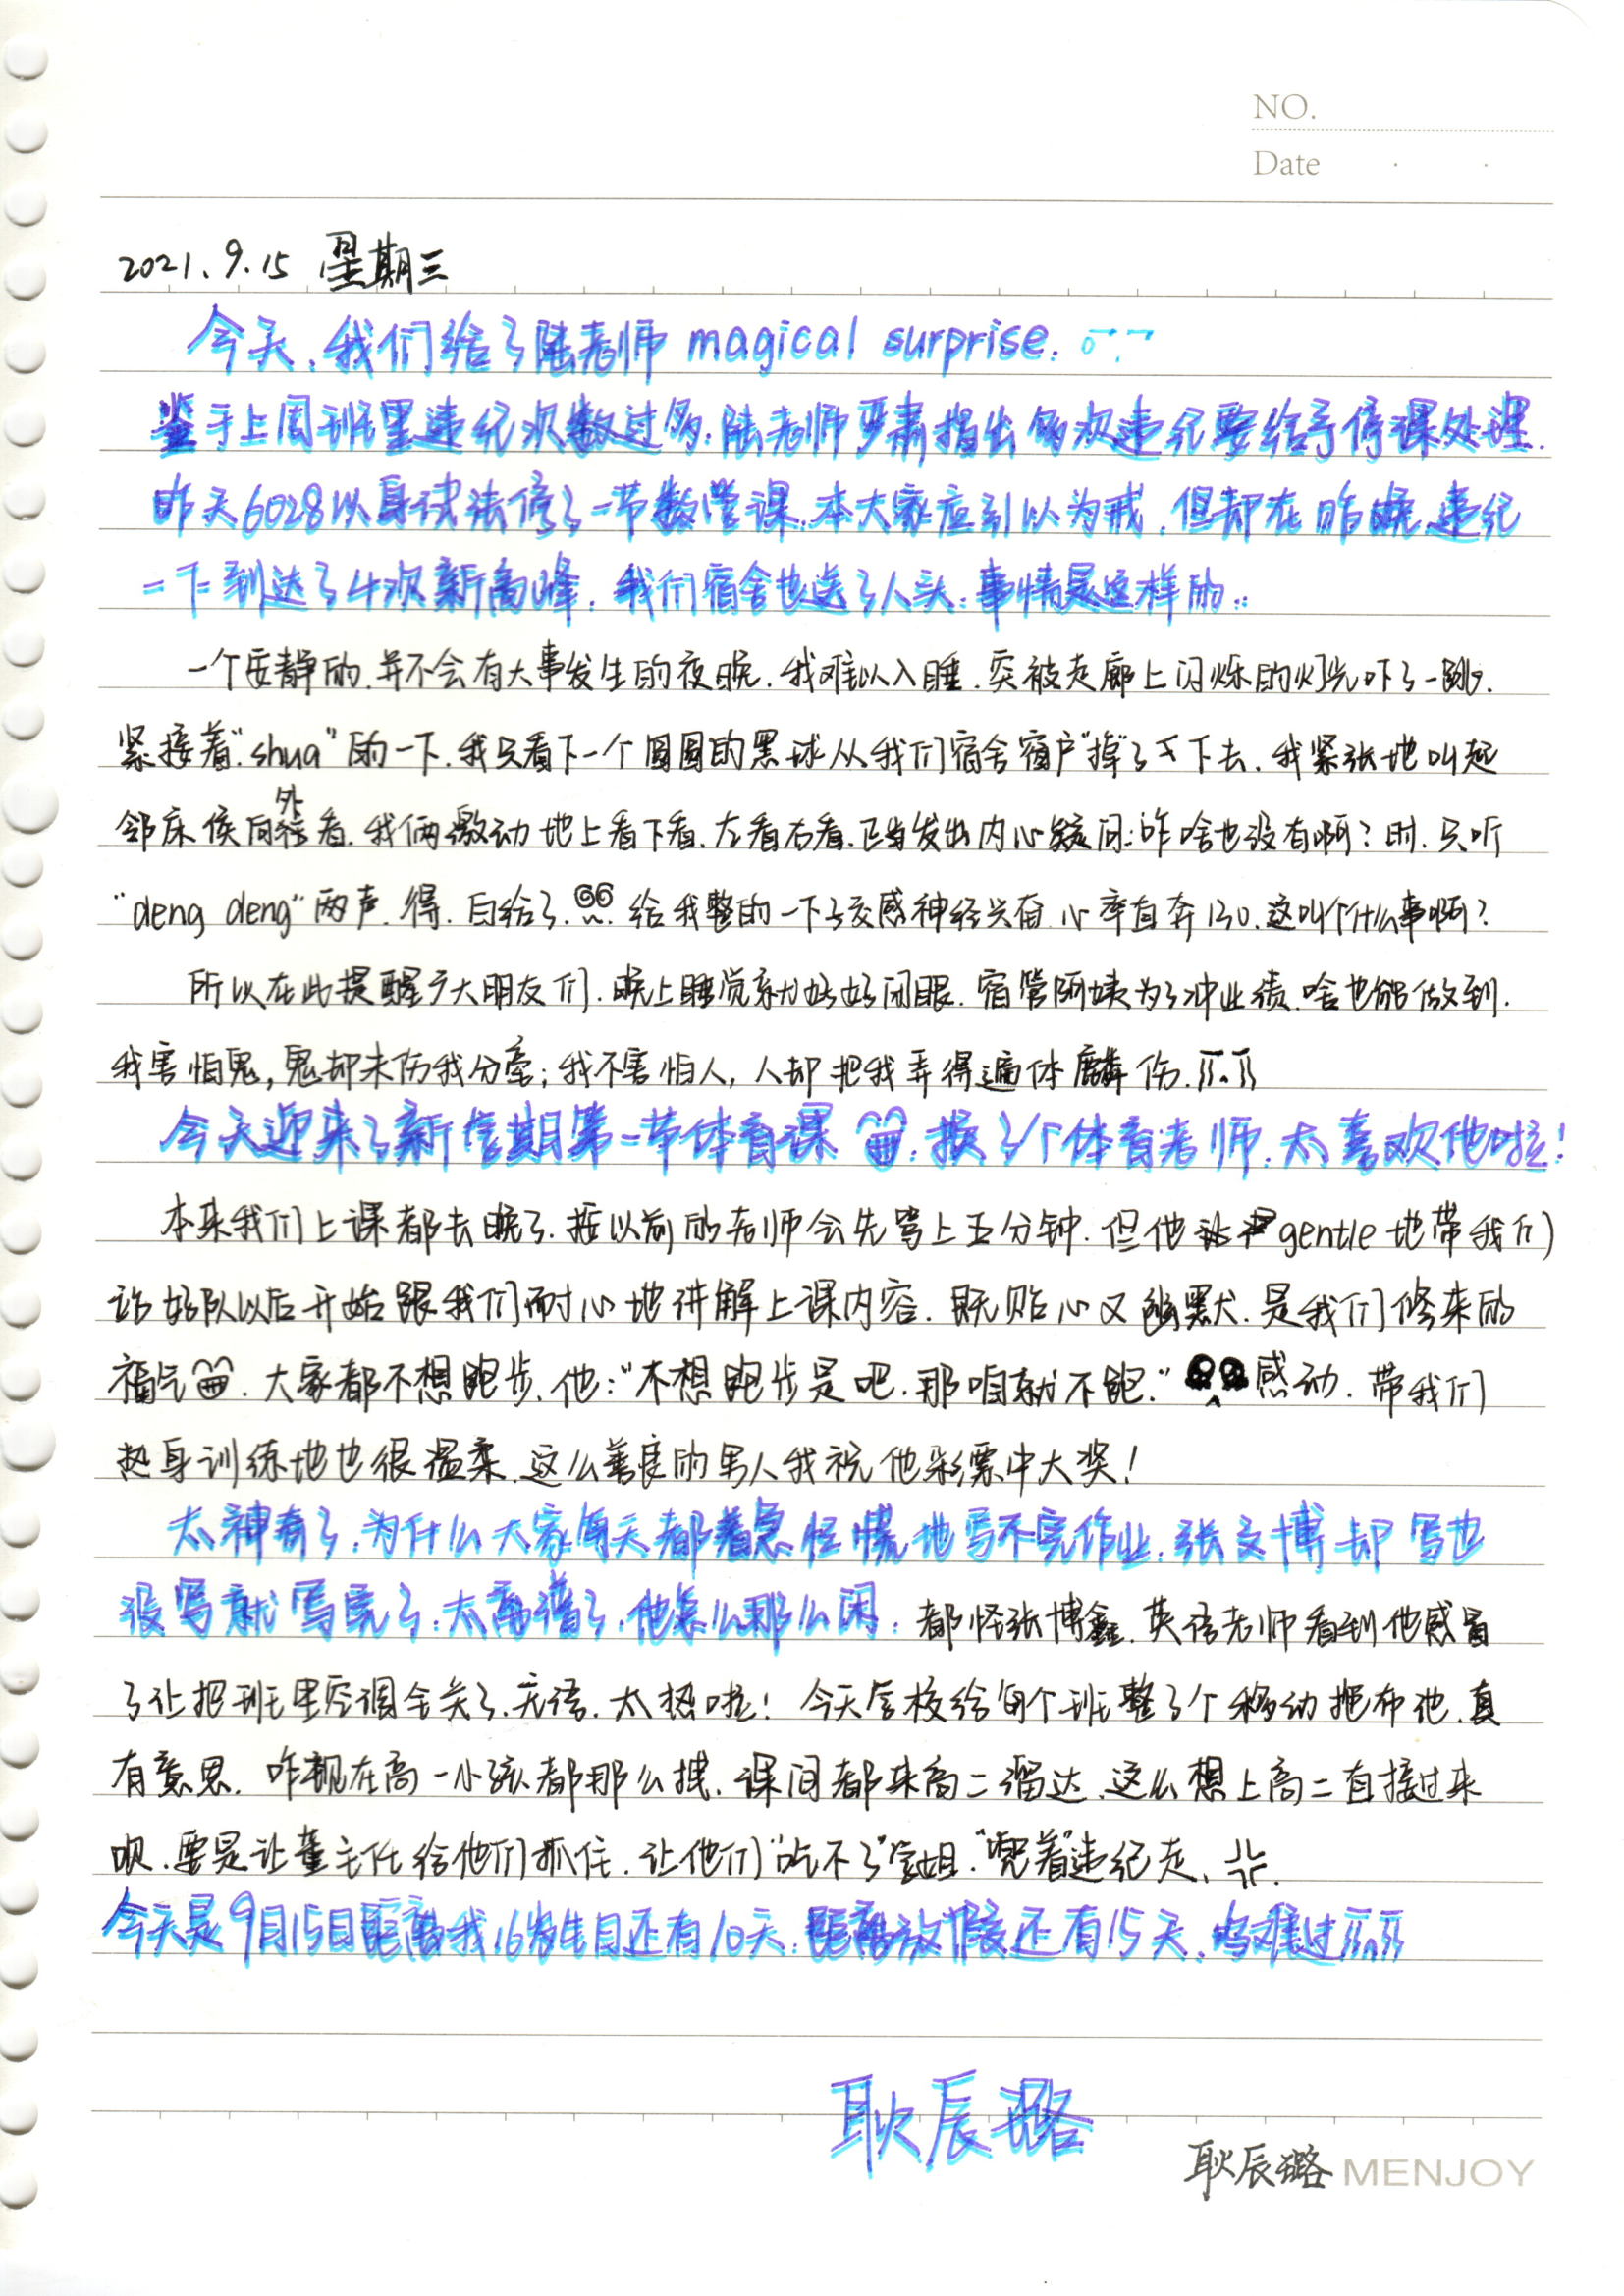 NO.
Date
2021.9.15 星期三
今天，我们给了陆老师 magical surprise.
鉴于上周班里违纪次数过多，陆老师严肃指出多次违纪要给予停课处理.
昨天6028以身试法停了一节数学课，本大家应引以为戒，但却在昨晚违纪
一下到达了4次新高峰，我们宿舍也送了人头，事情是这样的：
一个安静的，并不会有大事发生的夜晚，我难以入睡，突被走廊上闪烁的灯光吓了一跳，
紧接着“shua”的一下，我只看下一个圆圆的黑球从我们宿舍窗户“掉”了下去，我紧张地叫起
邻床侯向外看，我俩激动地上看下看，左看右看，正当发出内心疑问：咋啥也没有啊？时，只听
“deng deng”两声，得，白给了，给我整的一下子交感神经兴奋，心率直奔130，这叫个什么事啊？
所以在此提醒广大朋友们，晚上睡觉就好好闭眼，宿管阿姨为了冲业绩，啥也能做到.
我害怕鬼，鬼却未伤我分毫；我不害怕人，人却把我弄得遍体麟伤.
今天迎来了新学期第一节体育课，换了个体育老师，太喜欢他啦！
本来我们上课都去晚了，按以前的老师会先骂上五分钟，但他 gentle 地带我们
站好队以后开始跟我们耐心地讲解上课内容，既贴心又幽默，是我们修来的
福气，大家都不想跑步，他：“不想跑步是吧，那咱就不跑.”感动，带我们
热身训练地也很温柔，这么善良的男人我祝他彩票中大奖！
太神奇了，为什么大家每天都着急忙慌地写不完作业，张文博却写也
没写就写完了，太离谱了，他怎么那么闲，都怪张博鑫，英语老师看到他感冒
了让把班里空调全关了，无语，太热啦！今天学校给每个班整了个移动拖布池，真
有意思，咋现在高一小孩都那么拽，课间都来高二溜达，这么想上高二直接过来
呗，要是让董主任给他们抓住，让他们“吃不了”学姐，“兜着”违纪走，
今天是9月15日距离我16岁生日还有10天，距离放假还有15天，呜难过
耿辰璐
耿辰璐 MENJOY